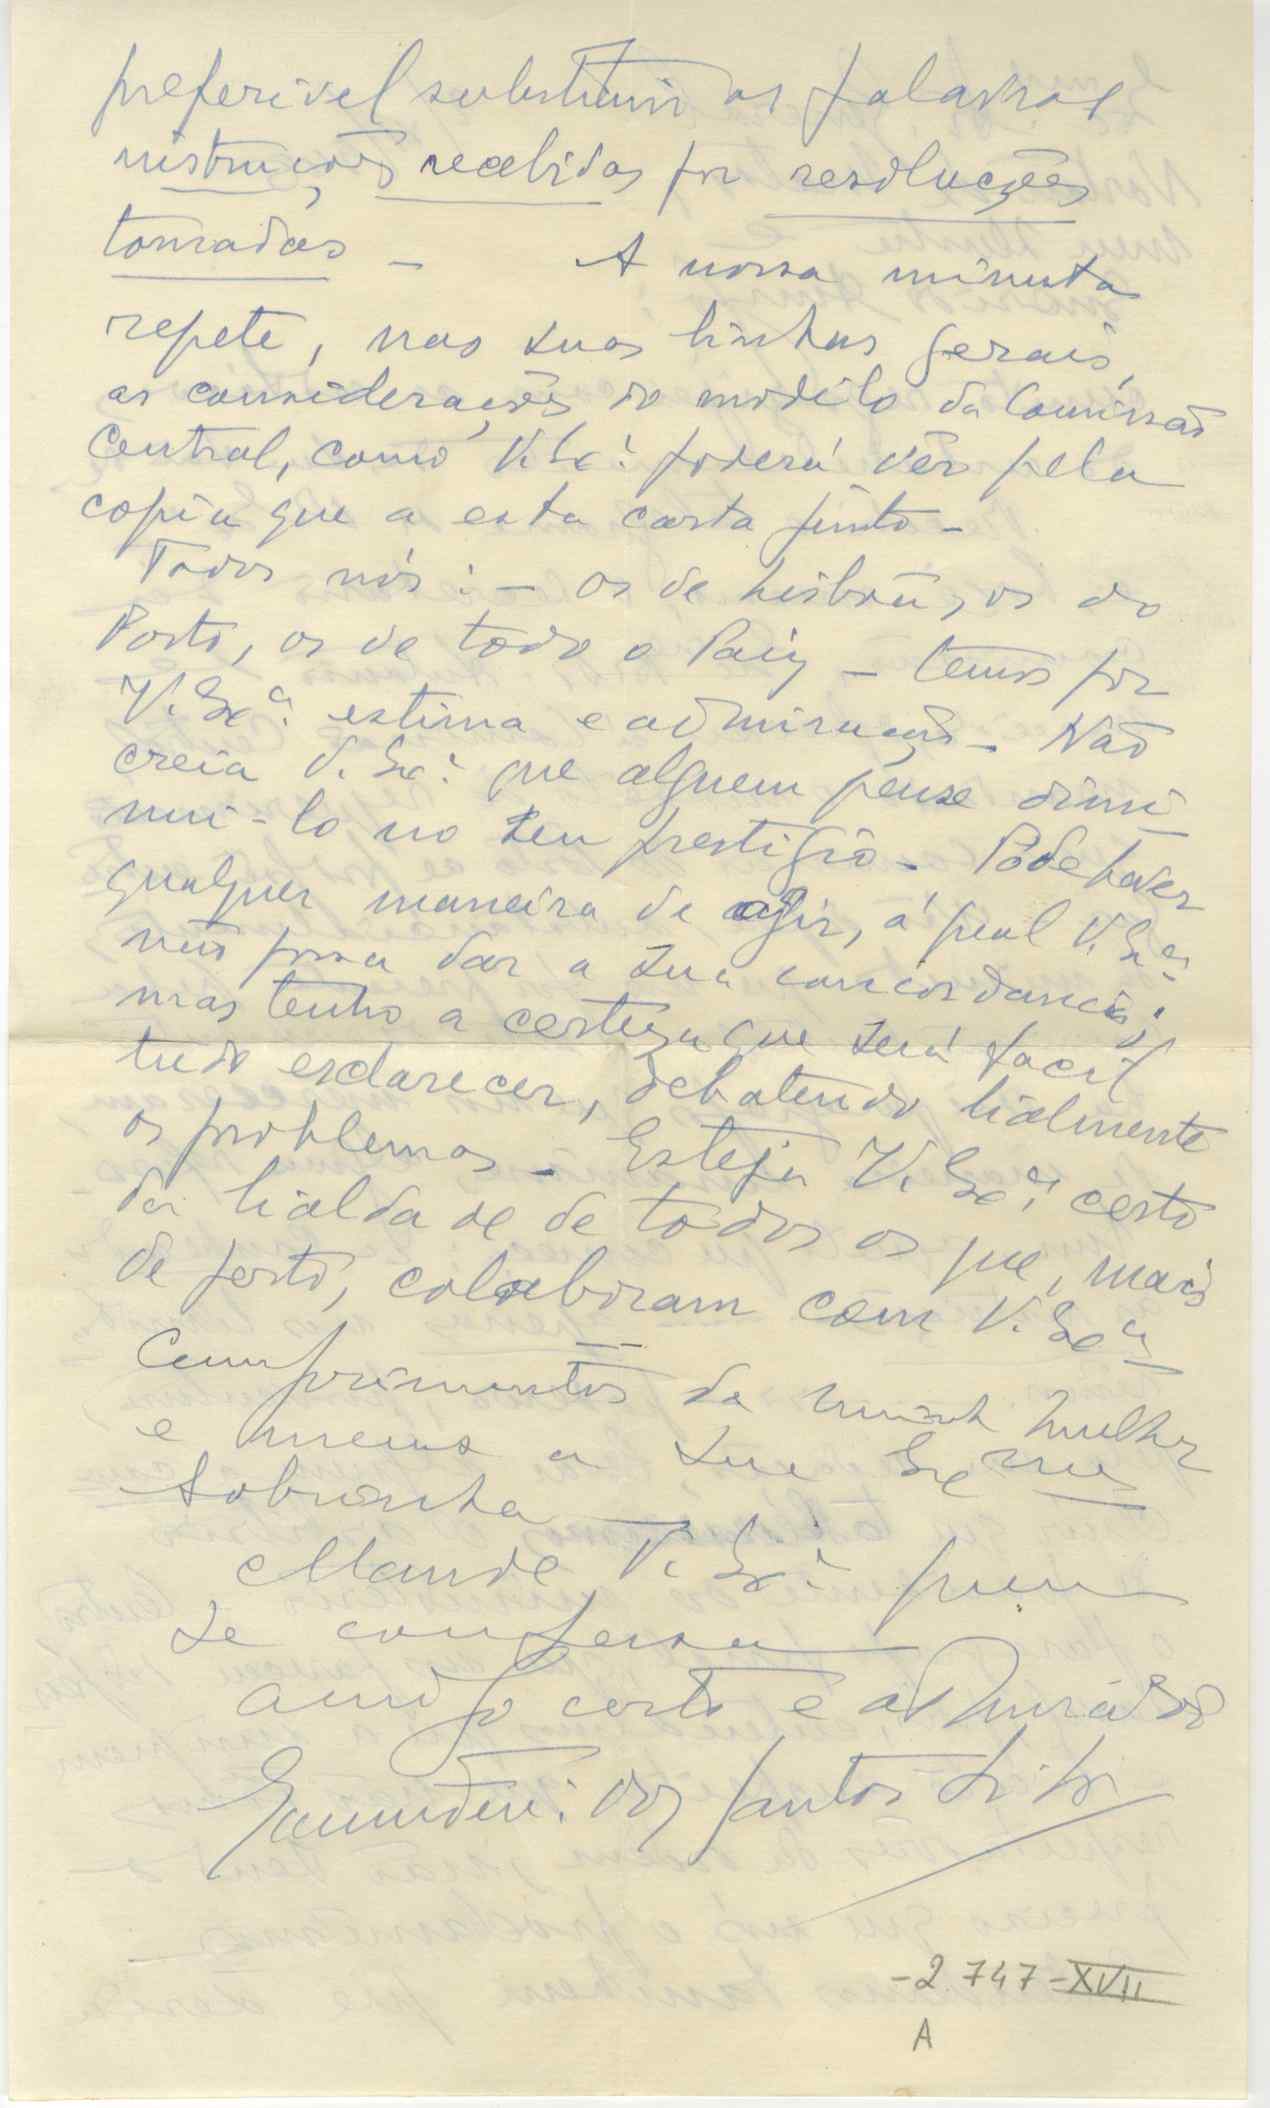 preferivel substituir as palavras
instruções recebidas por resoluções
tomadas – A nossa minuta
repete, nas suas linhas gerais,
as considerações do modêlo da Comissão
Central, como V. Exª poderá vêr pela
copia que a esta carta junto –
Todos nós: – os de Lisboa, os do
Porto, os de todo o Paiz – temos por
V. Exª estima e admiração – Não
creia V. Exª que alguem pense dimi
nui-lo no seu prestigio – Póde haver
qualquer maneira de agir, á qual V. Exª
não possa dar a sua concordancia;
mas tenho a certeza que será facil
tudo esclarecer, debatendo lialmente
os problemas – Esteja V. Exª certo
da lialdade de todos os que, mais
de perto, colaboram com V. Exª –
Cumprimentos de minha mulher
e meus a sua Exma
Sobrinha –
Mande V. Exª quem
se confessa
amigo certo e admirador
dos Santos
– 2.747 – XVII
A